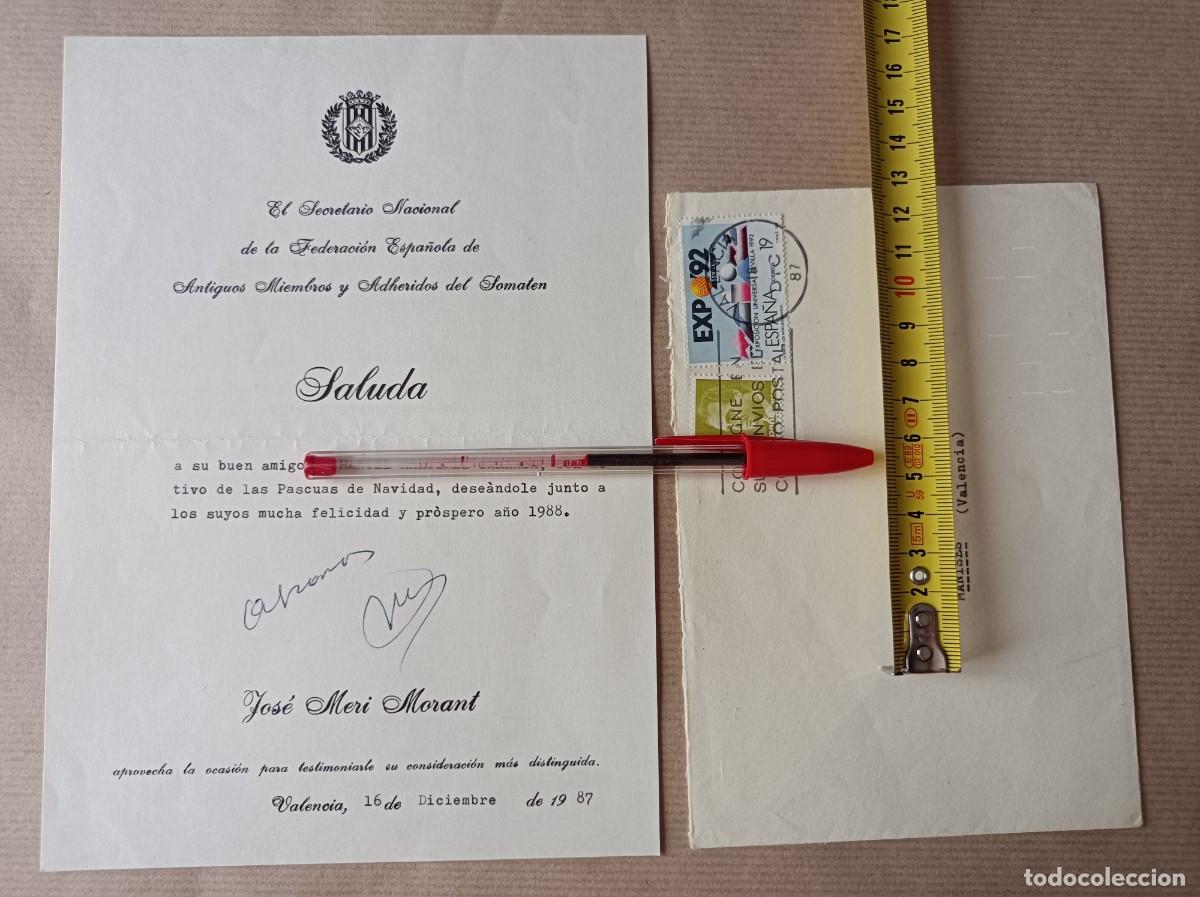 El Secretario Nacional
de la Federación Española de
Antiguos Miembros y Adheridos del Somaten
Saluda
a su buen amigo
tivo de las Pascuas de Navidad, deseàndole junto a
los suyos mucha felicidad y pròspero año 1988.
José Meri Morant
aprovecha la ocasión para testimoniarle su consideración más distinguida.
Valencia, 16 de Diciembre de 19 87
EXPO'92
EXPOSICION UNIVERSAL SEVILLA 1992
ESPAÑA
VALENCIA
19
87
ENVIOS
POSTAL
MANISES (Valencia)
18
17
16
15
14
13
12
11
10
9
8
7
6
5
4
3
2
5m
todocoleccion